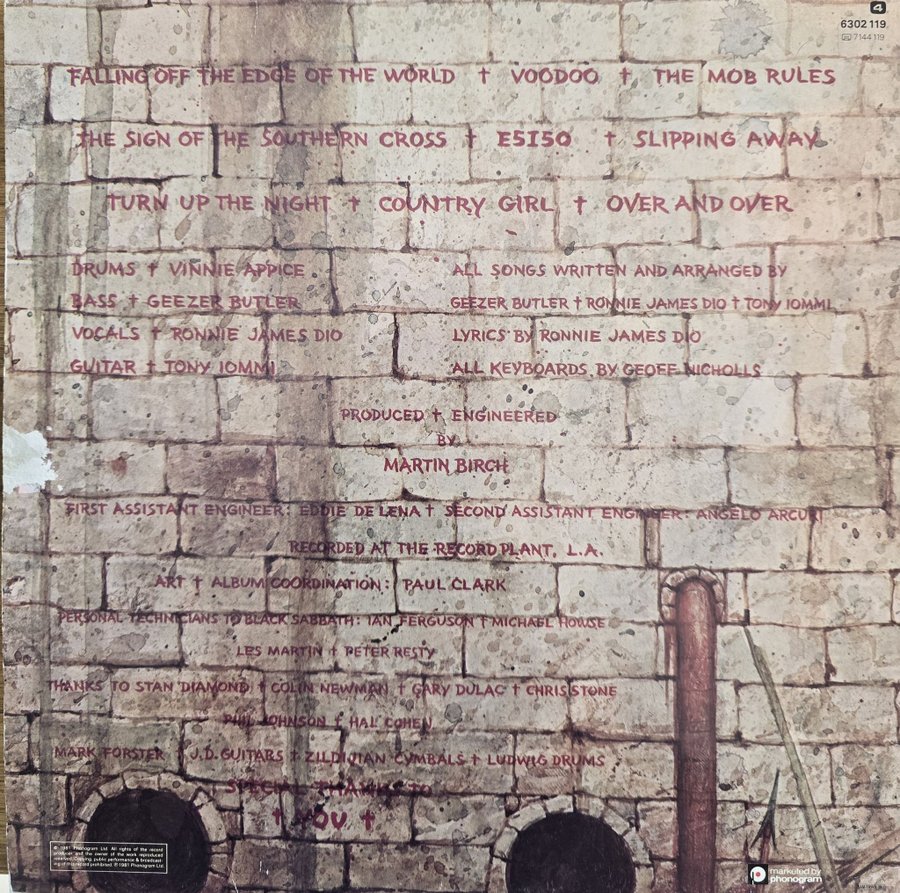 4
6302 119
7144 119
FALLING OFF THE EDGE OF THE WORLD † VOODOO † THE MOB RULES
THE SIGN OF THE SOUTHERN CROSS † E5150 † SLIPPING AWAY
TURN UP THE NIGHT † COUNTRY GIRL † OVER AND OVER
DRUMS † VINNIE APPICE
BASS † GEEZER BUTLER
VOCALS † RONNIE JAMES DIO
GUITAR † TONY IOMMI
ALL SONGS WRITTEN AND ARRANGED BY
GEEZER BUTLER † RONNIE JAMES DIO † TONY IOMMI
LYRICS BY RONNIE JAMES DIO
ALL KEYBOARDS BY GEOFF NICHOLLS
PRODUCED † ENGINEERED
BY
MARTIN BIRCH
FIRST ASSISTANT ENGINEER: EDDIE DE LENA † SECOND ASSISTANT ENGINEER: ANGELO ARCURI
RECORDED AT THE RECORD PLANT, L.A.
ART † ALBUM COORDINATION: PAUL CLARK
PERSONAL TECHNICIANS TO BLACK SABBATH: IAN FERGUSON † MICHAEL HOWSE
LES MARTIN † PETER RESTY
THANKS TO STAN DIAMOND † COLIN NEWMAN † GARY DULAC † CHRIS STONE
PHIL JOHNSON † HAL COHEN
MARK FORSTER † J.D. GUITARS † ZILDJIAN CYMBALS † LUDWIG DRUMS
SPECIAL THANKS TO
† YOU †
℗ 1981 Phonogram Ltd. All rights of the record
producer and the owner of the work reproduced
reserved. Copying, public performance & broadcast-
ing of this record prohibited. © 1981 Phonogram Ltd.
marketed by
phonogram